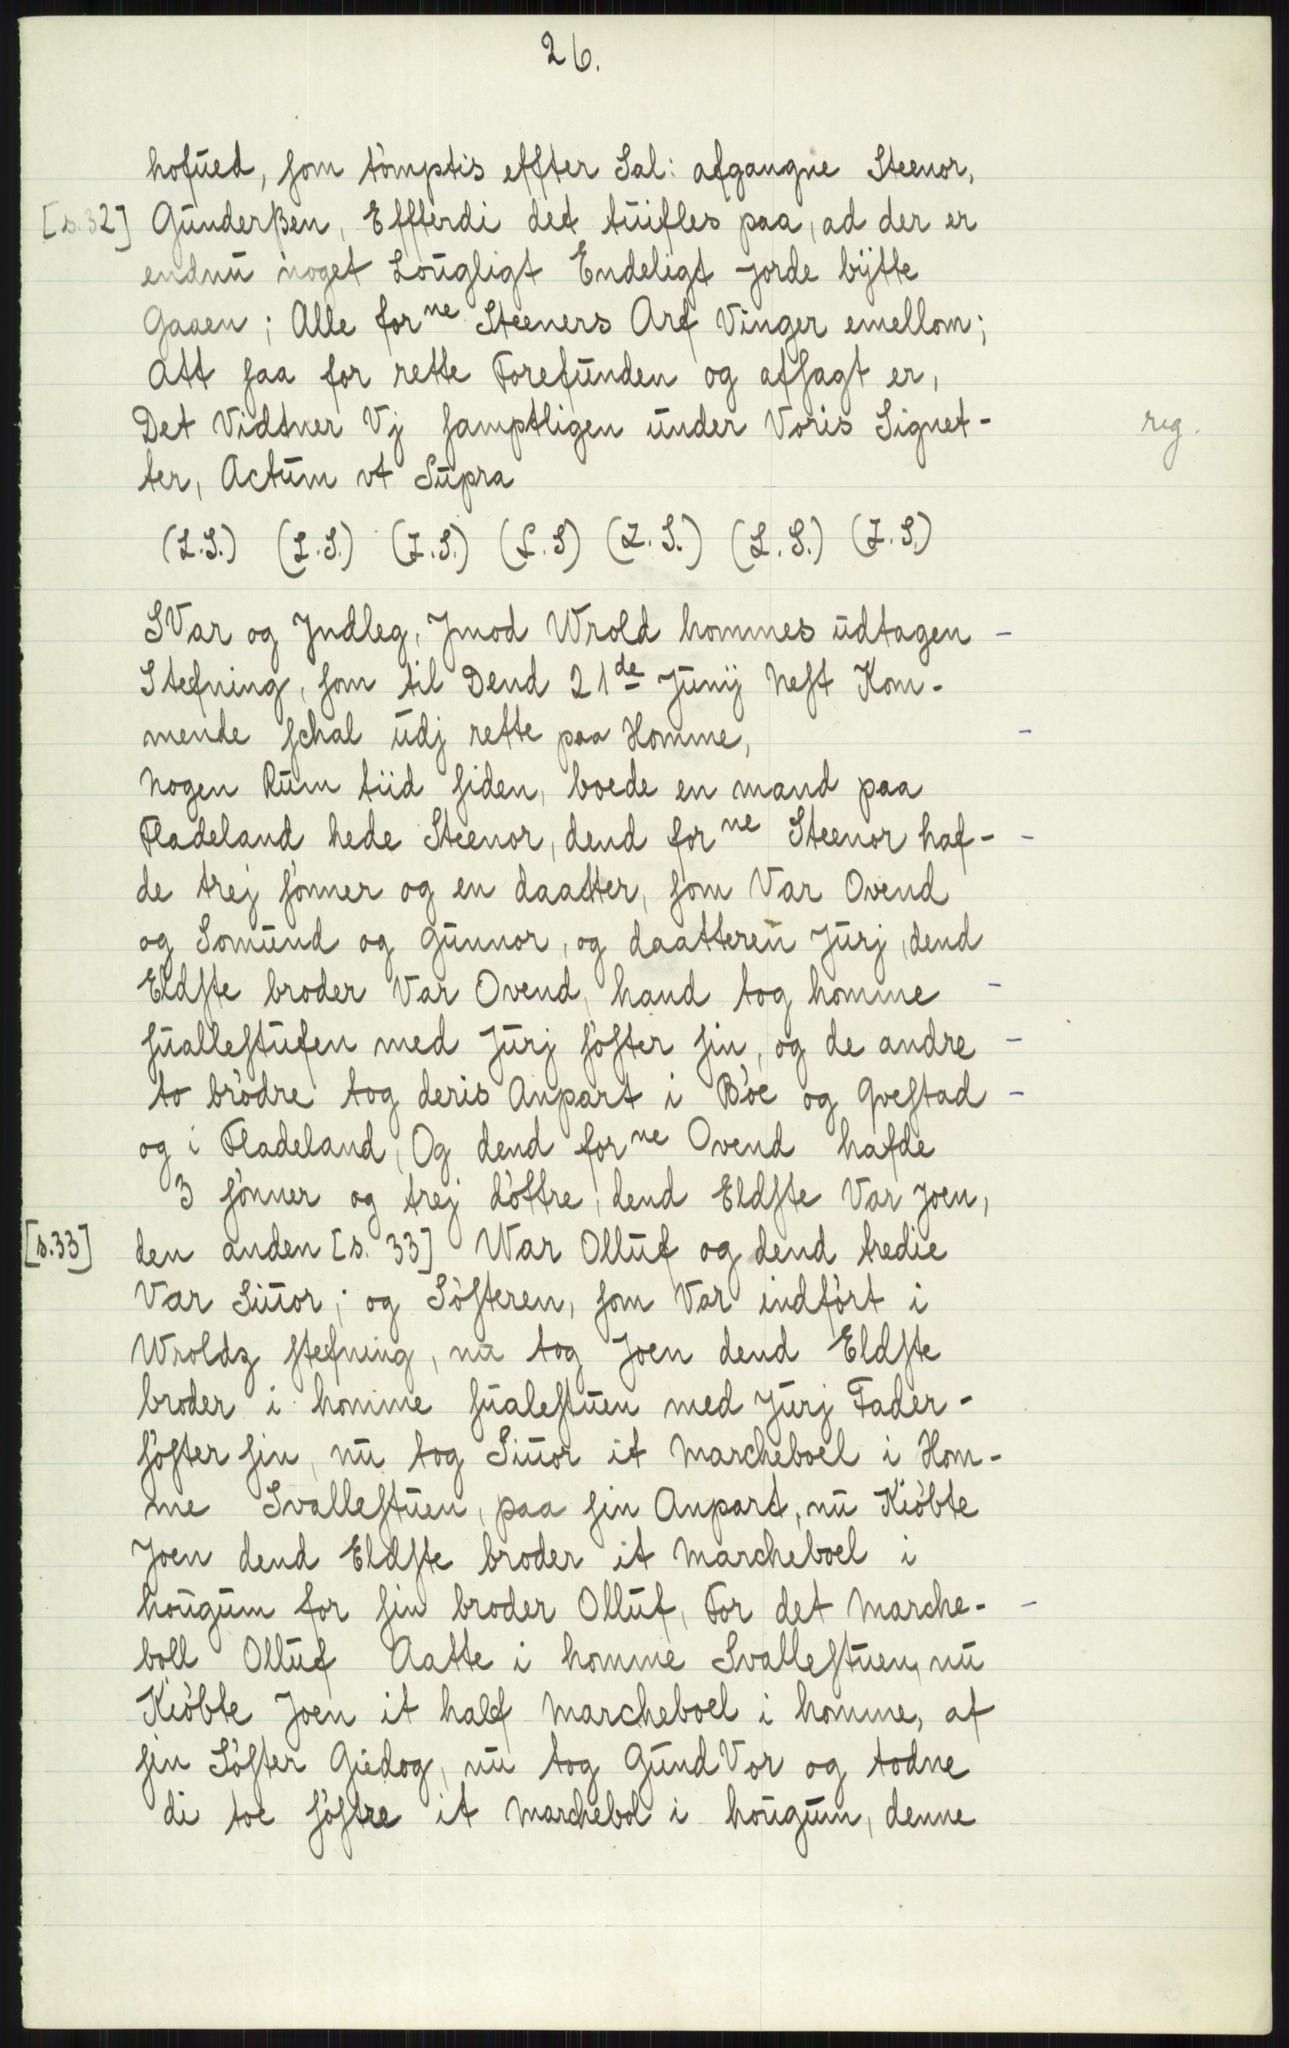 26.
hofued, som tømptis effter Sal: afgangne Steenor,
[s.32] Gunderßen, Effterdi det tuifles paa, ad der er
endnu noget Lougligt Endeligt Jorde bÿtte
Gaaen; Alle for ne Steeners Arf Vinger emellom;
Att saa for rette Forefunden og afsagt er,
Det Vidtner Vj samptligen under Voris Signet- reg.
ter, Actum vt Supra
(L.S.) (L.S.) (L.S.) (L.S) (L.S.) (L.S.) (L.S.)
SVar og Jndleg, Jmod Wrold hommes udtagen -
Stefning, som til Dend 21 de Junÿ Nest Kom-
mende schal udj rette paa Homme, -
Nogen Rum tiid siden, boede en mand paa
Fladeland hede Steenor, dend for ne Steenor haf- -
de trej sønner og en daatter, som Var Ovend
og Somund og Gunnor, og daatteren Jurj, dend
Eldste broder Var Ovend, hand tog homme -
suallestufen med Jurj søster sin, og de andre -
to brødre tog deris Anpart i Bøe og Qvestad -
og i Fladeland, Og dend for ne Ovend hafde
3 sønner og trej døttre, dend Eldste Var Joen,
[s.33] den anden [s. 33] War Olluf og dend tredie
Var Siuor; og Søsteren, som Var indført i
Wroldz stefning, nu tog Joen dend Eldste
broder i homme sualestuen med Jurj Fader-
søster sin, nu tog Siuor it Marcheboel i Hom-
me Svallestuen, paa sin Anpart, nu Kiøbte
Joen dend Eldste broder it Marcheboel i
hougum for sin broder Olluf, For det Marche- -
boll Olluf Aatte i homme Svallestuen, nu
Kiøbte Joen it half Marcheboel i homme, af
sin Søster Giedog, nu tog GundVor og todne
di toe søstre it Marchebol i hougum, denne